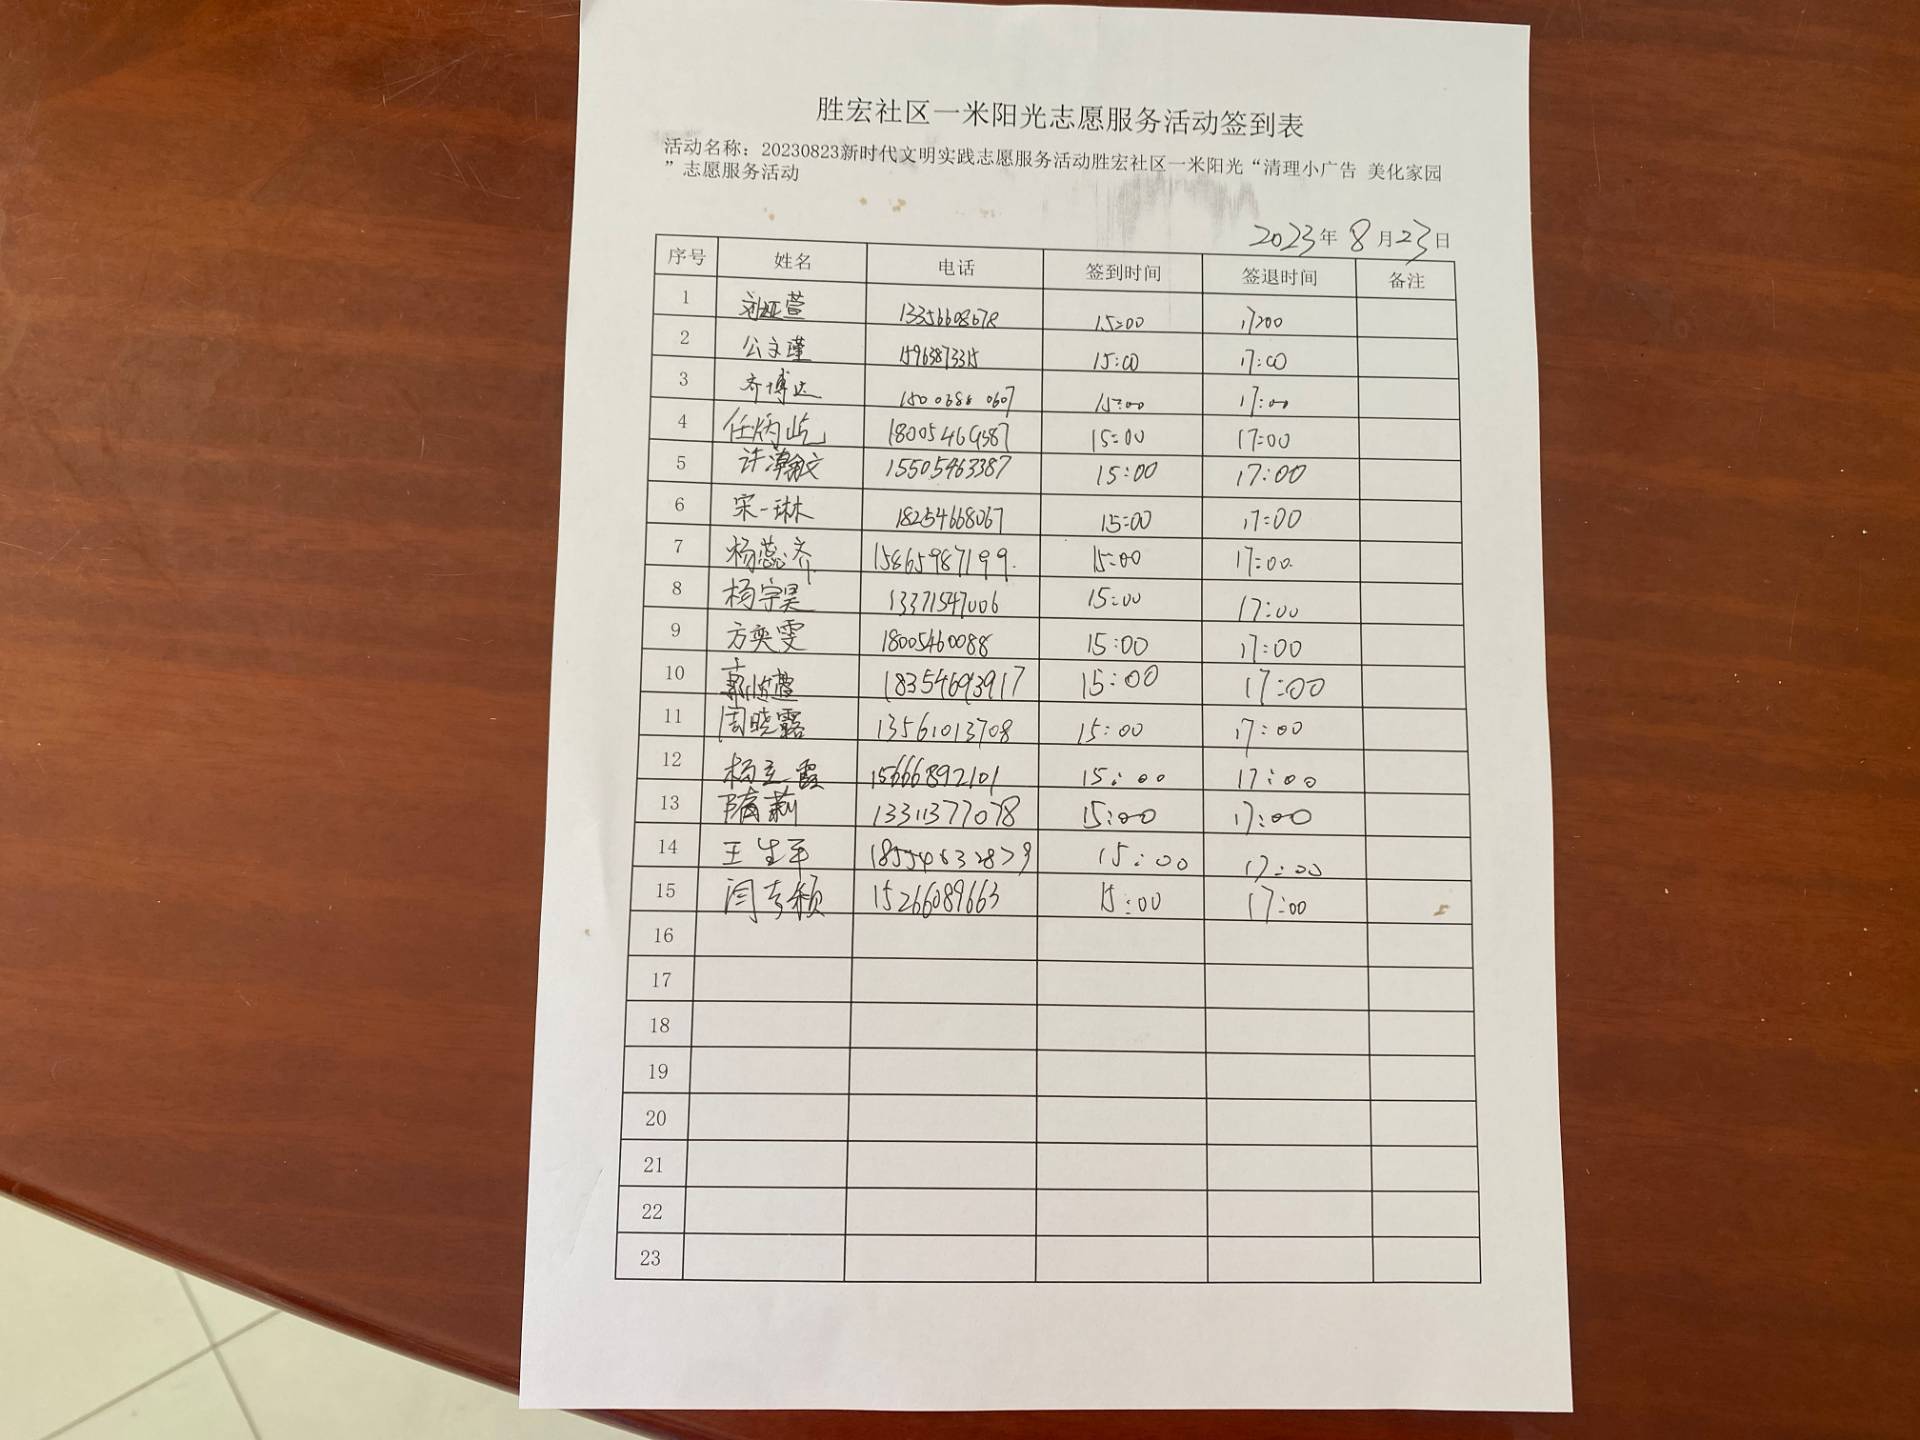 胜宏社区一米阳光志愿服务活动签到表
活动名称：20230823新时代文明实践志愿服务活动胜宏社区一米阳光“清理小广告 美化家园
”志愿服务活动
2023年 8 月23日
序号 姓名 电话 签到时间 签退时间 备注
1 刘娅萱 13356608678 15:00 17:00
2 公文瑾 15963873315 15:00 17:00
3 齐博达 15:00 17:00
4 任炳屹 15:00 17:00
5 许瀚文 15505463387 15:00 17:00
6 宋一琳 18254668067 15:00 17:00
7 杨蕊齐 15865987199 15:00 17:00
8 杨宇昊 13371547006 15:00 17:00
9 方奕雯 18005460088 15:00 17:00
10 18354693917 15:00 17:00
11 周晓露 13561013708 15:00 17:00
12 杨立霞 15666892101 15:00 17:00
13 隋莉 13311377078 15:00 17:00
14 王生平 18554632879 15:00 17:00
15 闫专颖 15266089663 15:00 17:00
16
17
18
19
20
21
22
23